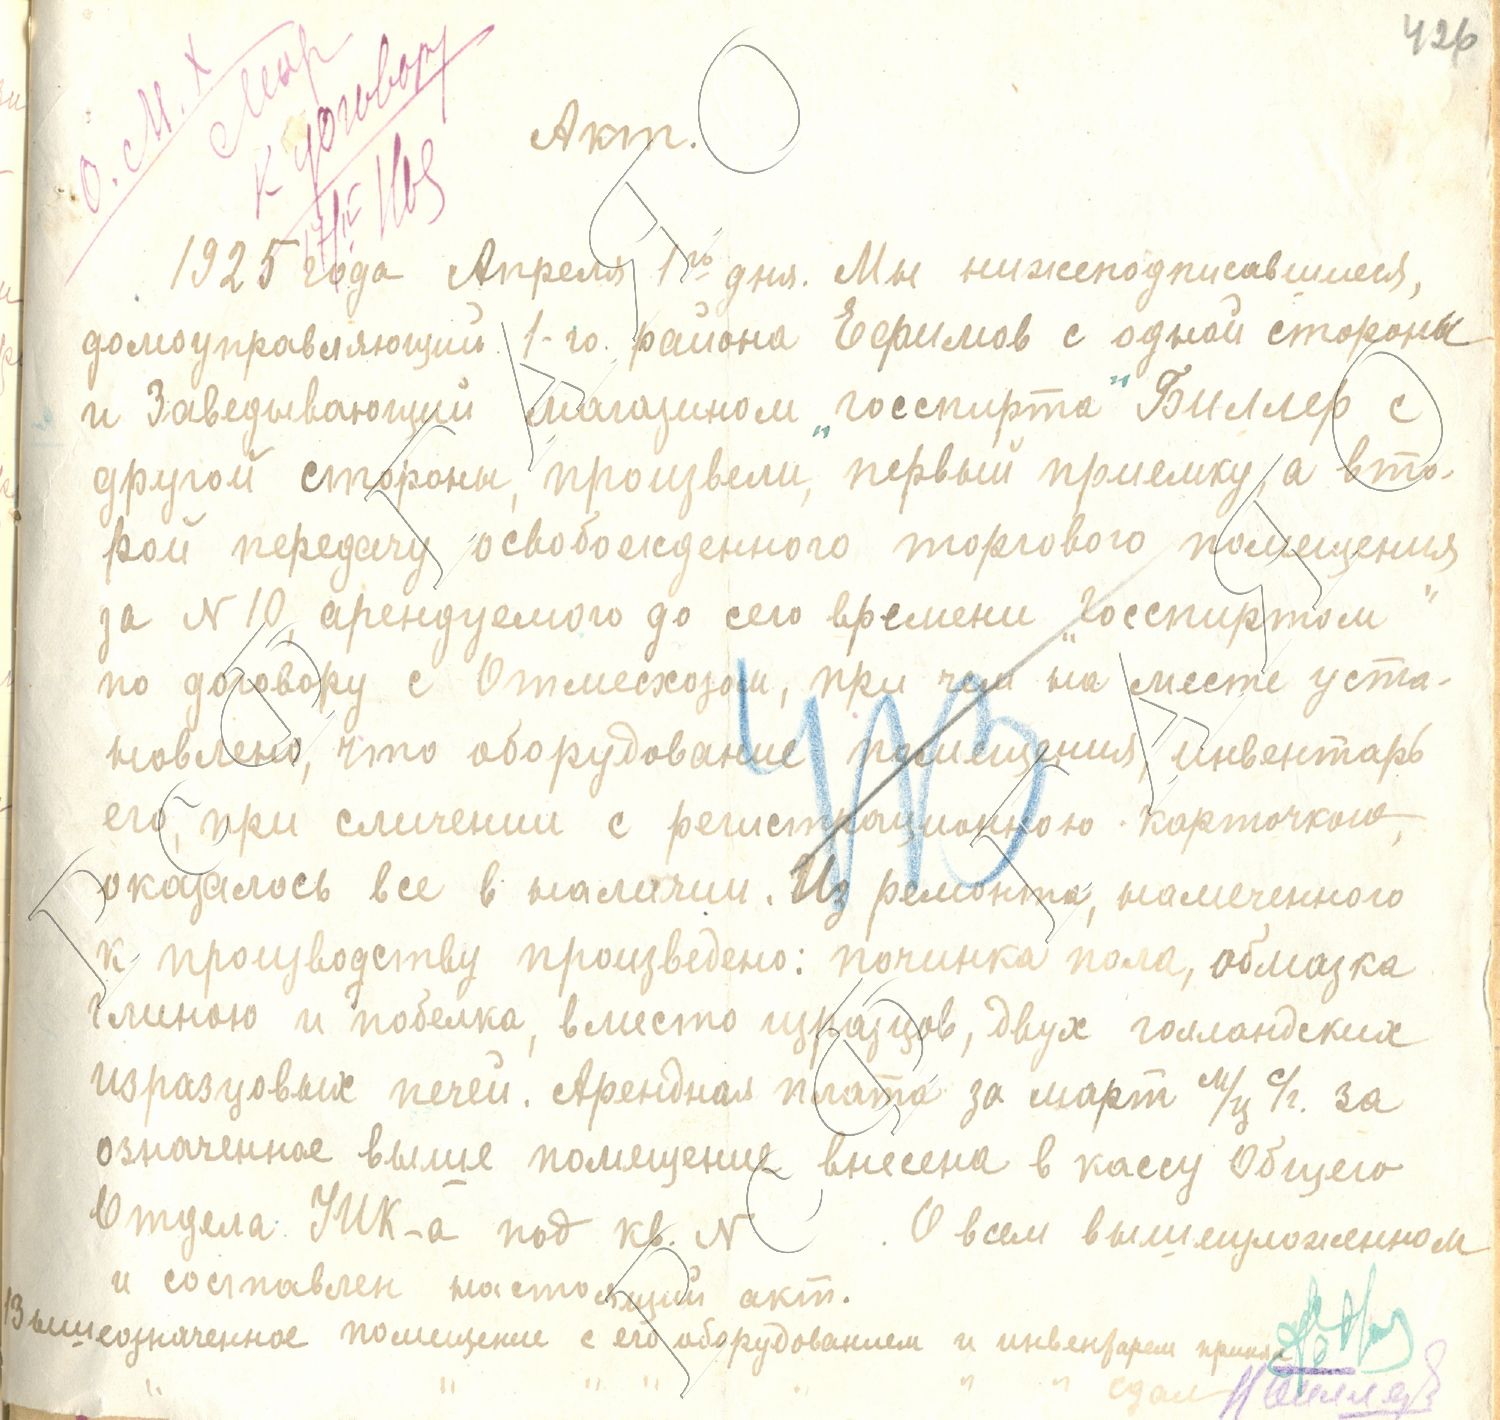 426
О.М.Х
к договору
Акт.
1925 года Апреля 1го дня. Мы нижеподписавшиеся,
домоуправляющий 1-го района Ефимов с одной стороны
и Заведывающий магазином „Госспирта" Биллер с
другой стороны, произвели, первый приемку, а вто-
рой передачу освобожденного торгового помещения
за N 10, арендуемого до сего времени „Госспиртом"
по договору с Отместхозом, при чем на месте уста-
новлено, что оборудование помещения, инвентарь
его, при сличении с регистрационною карточкою,
оказалось все в наличии. Из ремонта, намеченного
к производству произведено: починка пола, обмазка
глиною и побелка, вместо изразцов, двух голландских
изразцовых печей. Арендная плата за март м/ц с/г. за
означенное выше помещение внесена в кассу Общего
Отдела УИК-а под кв. N . О всем вышеизложенном
и составлен настоящий акт.
Вышеозначенное помещение с его оборудованием и инвентарем принял
" " " " " " " сдал Биллер